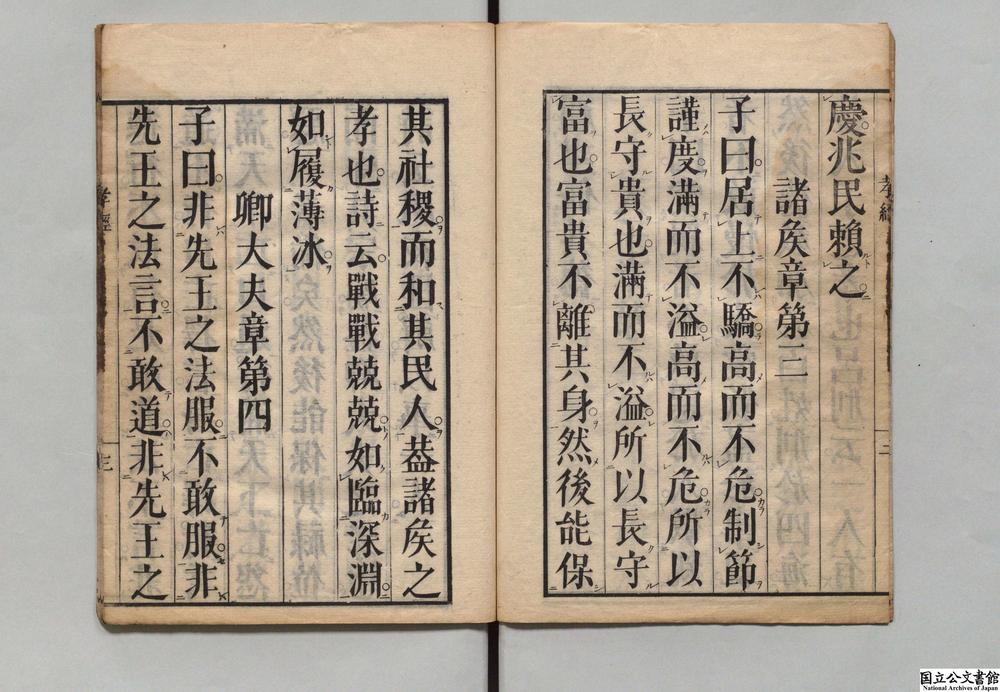 慶兆民賴之
諸矦章第三
子曰居上不驕高而不危制節
謹度滿而不溢高而不危所以
長守貴也滿而不溢所以長守
富也富貴不離其身然後能保
其社稷而和其民人葢諸矦之
孝也詩云戰戰兢兢如臨深淵
如履薄冰
卿大夫章第四
子曰非先王之法服不敢服非
先王之法言不敢道非先王之
孝經
二
孝經
三
国立公文書館
National Archives of Japan